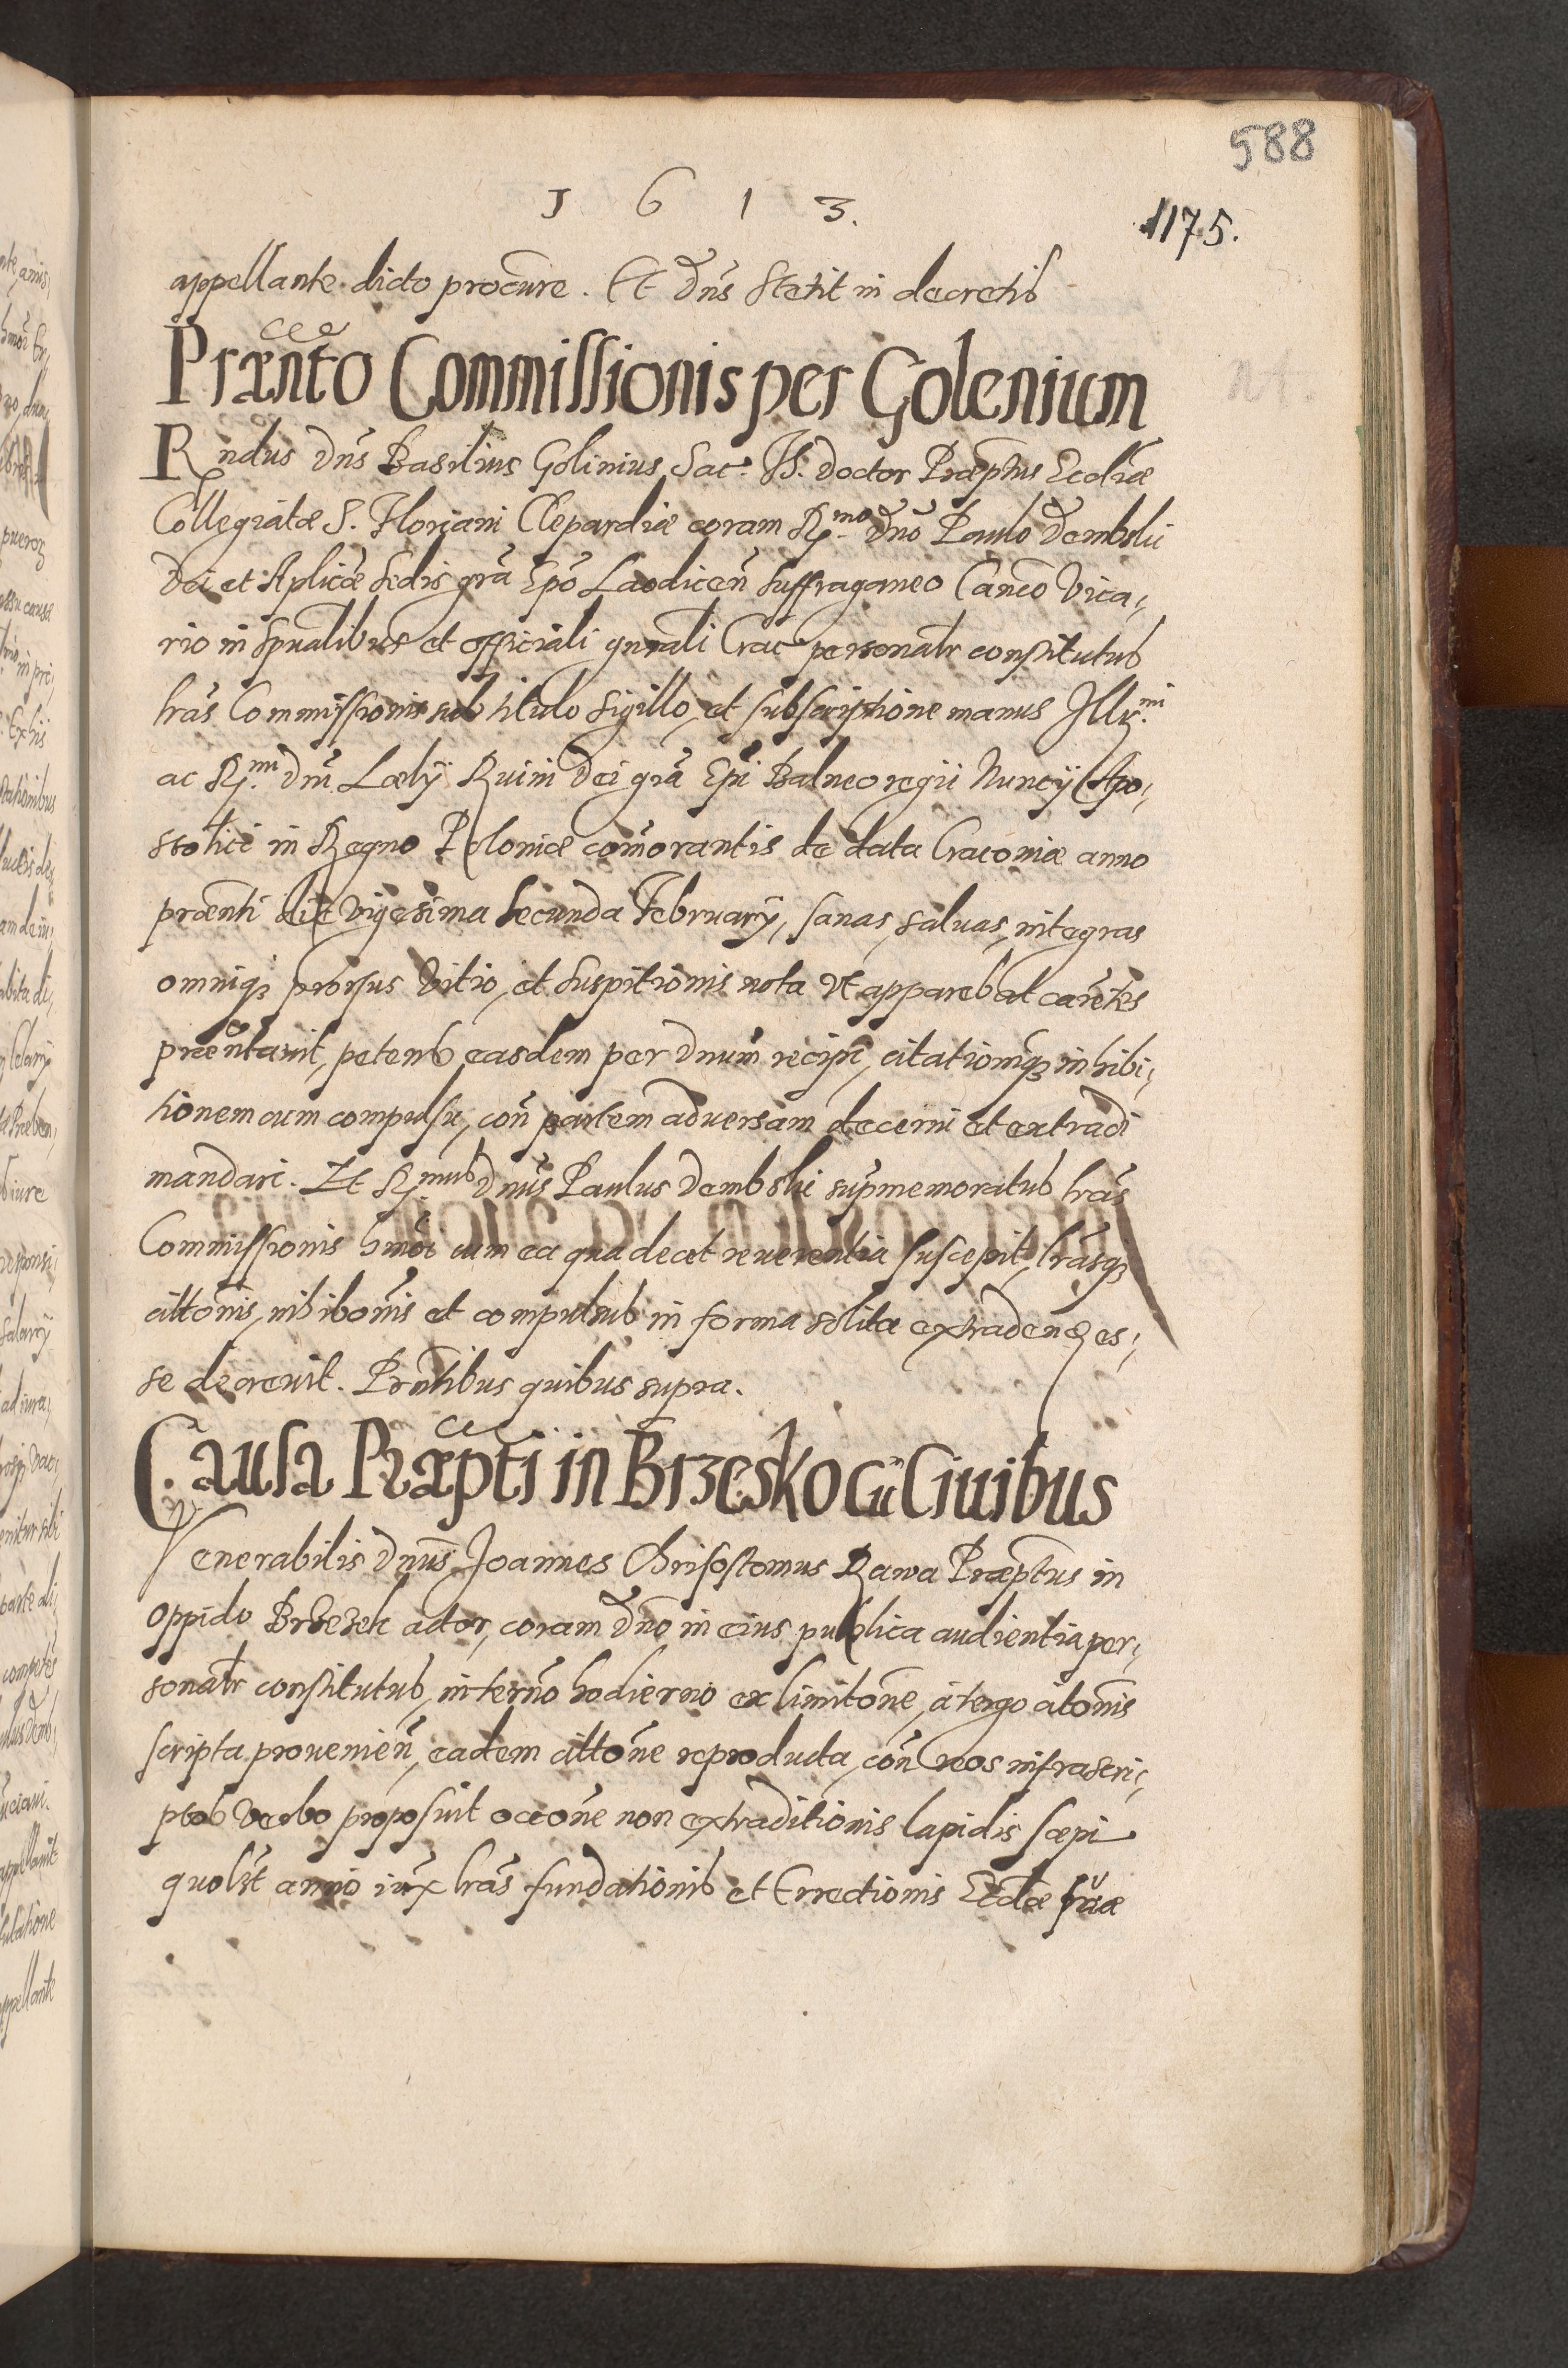 588
1613.
1175.
appellante dicto procūre. Et Dn̄s stetit in decretis
Præn̄to Commissionis per Golenium
Rn̄dus Dn̄s Basilius Golinius Sac. Th. Doctor Præp̄tus Eccliæ
Collegiatæ S. Floriani Clepardiæ coram R.mo Dn̄o Paulo Dembski
Dei et Aplicæ Sedis gr̄a Ep̄o Laodicen̄ Suffraganeo Can̄co Vica,
rio in Spualibus et Officiali gn̄rali Crac. personalr constitutus
lr̄as Commissionis sub titulo sigillo, et subscriptione manus Illr.mi
ac R.mi Dn̄i Lælij Ruini Dei gr̄a Ep̄i Balneoregii Nuncij Apo,
stolici in Regno Poloniæ com̄orantis de data Cracoviæ anno
præn̄ti die vigesima secunda February, sanas, saluas, integras
omniq; prorsus vitio, et suspitionis nota vt apparebat caren̄tes
præn̄tauit, petens easdem per Dnum recipi, citationemq; inhibi,
tionem cum compulsu, con̄ partem aduersam decerni et extradi
mandari. Et R.mus Dn̄us Paulus Dembski sup̄memoratus lr̄as
Commissionis hmōi cum ea qua decet reuerentia suscepit, lr̄asq;
citton̄is, inhibon̄is et compulsus in forma solita extradend es,
se decreuit. Prn̄tibus quibus supra.
Causa Præpti in Brzesko cū Ciuibus
Venerabilis Dn̄us Joannes Chrisostomus Rawa Præp̄tus in
oppido Brzezek actor, coram Dn̄o in eius publica audientia per,
sonalr constitutus, in tern̄o hodierno ex limiton̄e, à tergo citon̄is
scripta prouenien̄, eadem citton̄e reproducta, con̄ reos infrascri,
ptos verbo proposuit occon̄e non extraditionis lapidis sæpi
quolz̄t anno iux̄ lr̄as fundationis et Errectionis Eccliæ suæ